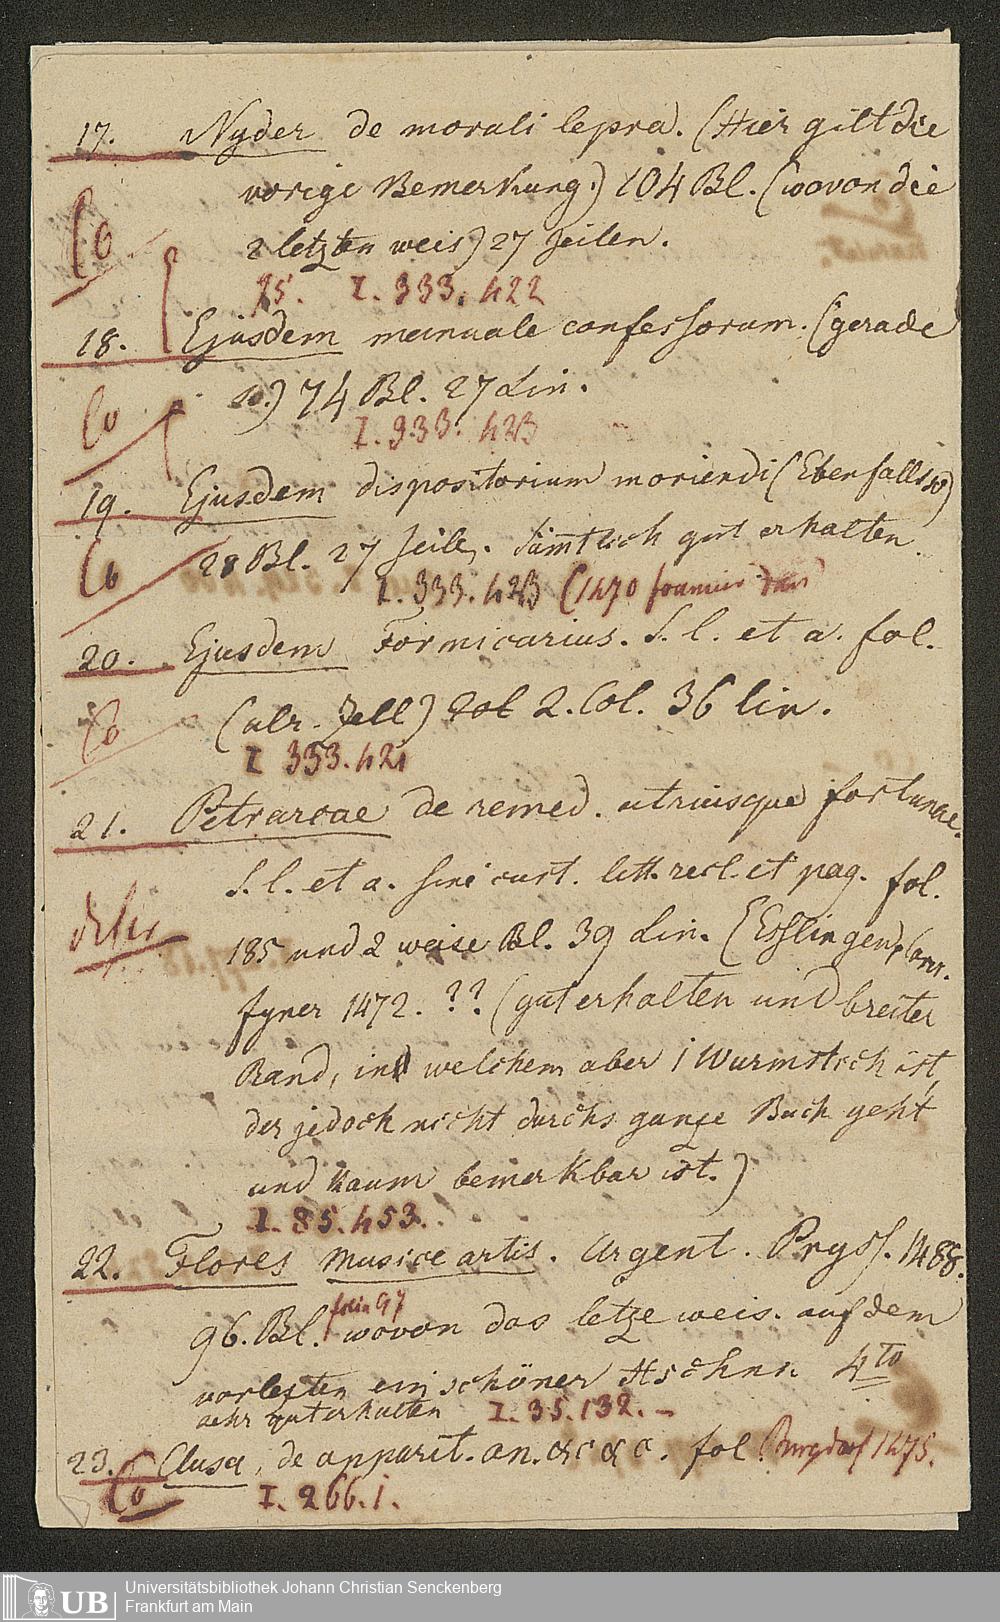 17. Nyder de morali lepra. (Hier gilt die
vorige Bemerkung.) 104 Bl. (wovon die
2 letzten weis) 27 Zeilen.
I. 333. 422
18. Ejusdem manuale confessorum. (gerade
so.) 74 Bl. 27 Lin.
I. 333. 423
19. Ejusdem dispositorium moriendi (Ebenfalls so)
28 Bl. 27 Zeile. Sämtlich gut erhalten.
I. 333. 423 (1470
20. Ejusdem Formicarius. S. l. et a. fol.
(Ulr. Zell) 2. Col. 36 lin.
I 333. 421
21. Petrarcae de remed. utriusque fortunae.
S. l. et a. sine cust. litt. recl. et pag. fol.
185 und 2 weise Bl. 39 Lin. (Esslingen, Conr.
Fyner 1472. ?? (gut erhalten und breiter
Rand, in welchem aber 1 Wurmstich ist,
der jedoch nicht durchs ganze Buch geht
und kaum bemerkbar ist.)
I. 85. 453.
22. Flores musice artis. Argent. Pryss. 1488.
folia 97
96. Bl. wovon das letze weis. auf dem
vorletzten ein schöner Hschn. 4to
sehr guterhalten I. 35. 132. –
23. Clusa, de apparit. an. &c &c. fol. Burgdorf 1475.
I. 266. 1.
UB
Universitätsbibliothek Johann Christian Senckenberg
Frankfurt am Main